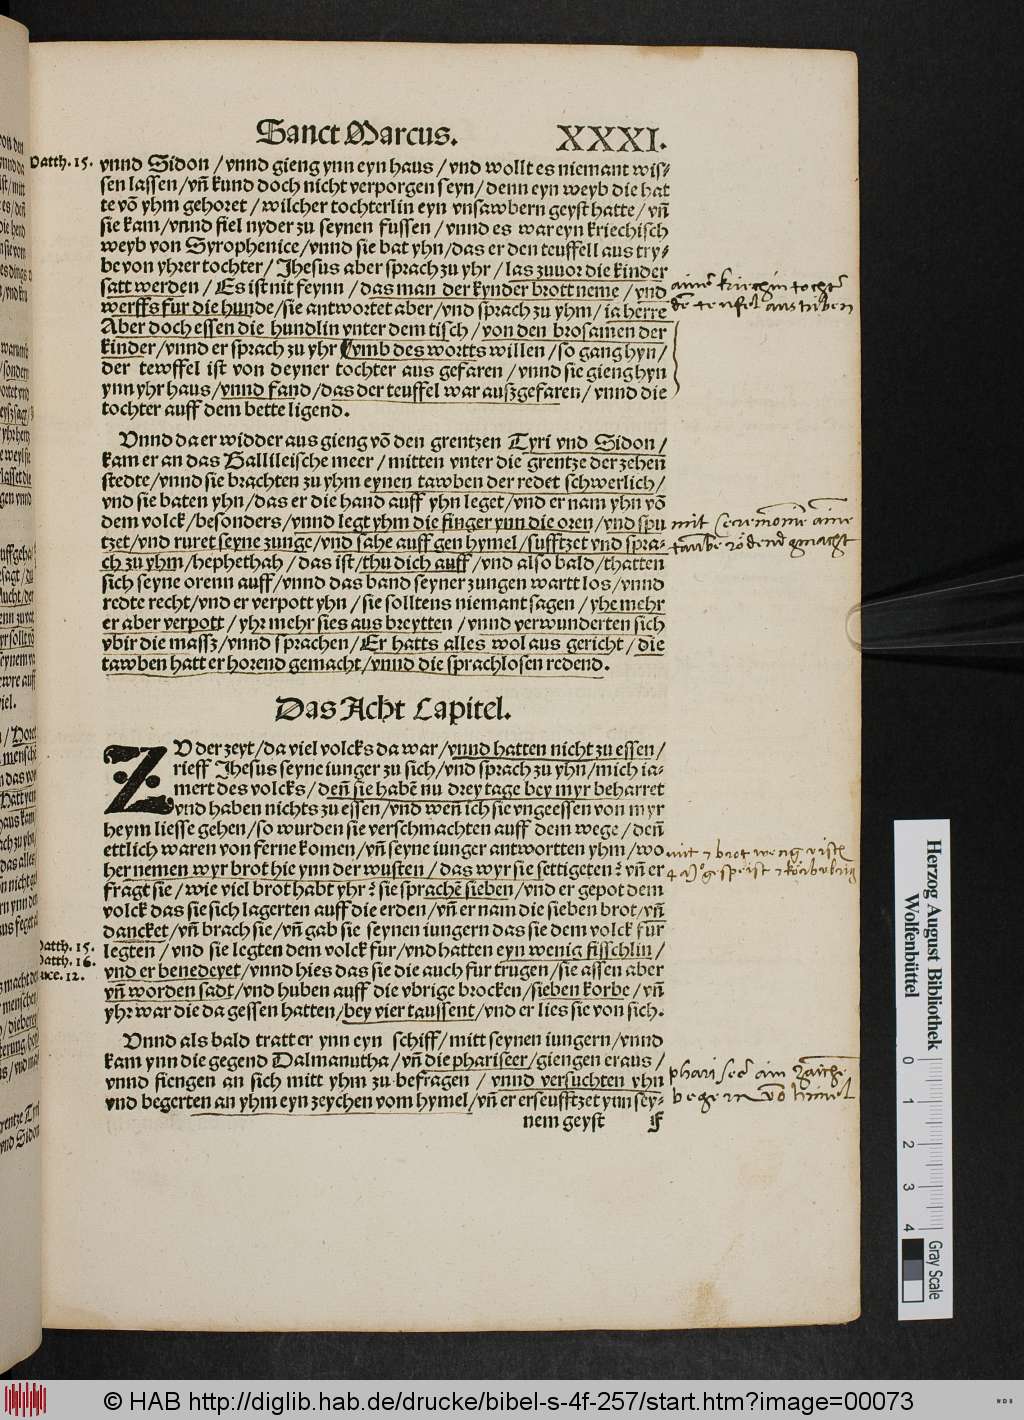 Sanct Marcus. XXXI.
Matth. 15.
vnnd Sidon / vnnd gieng ynn eyn haus / vnd wollt es niemant wis-
sen lassen / vñ kund doch nicht verporgen seyn / denn eyn weyb die hat
te võ yhm gehoret / wilcher tochterlin eyn vnsawbern geyst hatte / vñ
sie kam / vnnd fiel nyder zu seynen fussen / vnnd es war eyn kriechisch
weyb von Syrophenice / vnnd sie bat yhn / das er den teuffell aus try-
be von yhrer tochter / Jhesus aber sprach zu yhr / las zuuor die kinder
satt werden / Es ist nit feynn / das man der kynder brott neme / vnd
werffs fur die hunde / sie antwortet aber / vnd sprach zu yhm / ia herre
Aber doch essen die hundlin vnter dem tisch / von den brosamen der
kinder / vnnd er sprach zu yhr / vmb des wortts willen / so gang hyn /
der tewffel ist von deyner tochter aus gefaren / vnnd sie gieng hyn
ynn yhr haus / vnnd fand / das der teuffel war außgefaren / vnnd die
tochter auff dem bette ligend.
Vnnd da er widder aus gieng võ den grentzen Tyri vnd Sidon /
kam er an das Gallileische meer / mitten vnter die grentze der zehen
stedte / vnnd sie brachten zu yhm eynen tawben der redet schwerlich /
vnd sie baten yhn / das er die hand auff yhn leget / vnd er nam yhn võ
dem volck / besonders / vnnd legt yhm die finger ynn die oren / vnd spu
tzet / vnd ruret seyne zunge / vnd sahe auff gen hymel / sufftzet vnd spra-
ch zu yhm / hephethah / das ist / thu dich auff / vnd also bald / thatten
sich seyne orenn auff / vnnd das band seyner zungen wartt los / vnnd
redte recht / vnd er verpott yhn / sie solltens niemant sagen / yhe mehr
er aber verpott / yhr mehr sies aus breytten / vnnd verwunderten sich
vbir die massz / vnnd sprachen / Er hatts alles wol aus gericht / die
tawben hatt er horend gemacht / vnnd die sprachlosen redend.
Das Acht Capitel.
ZV der zeyt / da viel volcks da war / vnnd hatten nicht zu essen /
rieff Jhesus seyne iunger zu sich / vnd sprach zu yhn / mich ia-
mert des volcks / deñ sie habẽ nu drey tage bey myr beharret
vnd haben nichts zu essen / vnd weñ ich sie vngeessen von myr
heym liesse gehen / so wurden sie verschmachten auff dem wege / deñ
ettlich waren von ferne komen / vñ seyne iunger antwortten yhm / wo
her nemen wyr brot hie ynn der wusten / das wyr sie settigeten? vñ er
fragt sie / wie viel brot habt yhr? sie sprachẽ sieben / vnd er gepot dem
volck das sie sich lagerten auff die erden / vñ er nam die sieben brot / vñ
dancket / vñ brach sie / vñ gab sie seynen iungern das sie dem volck fur
Matth. 15.
Matth. 16.
uce. 12.
legten / vnd sie legten dem volck fur / vnd hatten eyn wenig fisschlin /
vnd er benedeyet / vnnd hies das sie die auch fur trugen / sie assen aber
vñ worden sadt / vnd huben auff die vbrige brocken / sieben korbe / vñ
yhr war die da gessen hatten / bey vier taussent / vnd er lies sie von sich.
Vnnd als bald tratt er ynn eyn schiff / mitt seynen iungern / vnnd
kam ynn die gegend Dalmanutha / vñ die phariseer / giengen eraus /
vnnd fiengen an sich mitt yhm zu befragen / vnnd versuchten yhn
vnd begerten an yhm eyn zeychen vom hymel / vñ er erseufftzet ynn sey-
nem geyst F
begern võ himel
Herzog August Bibliothek
Wolfenbüttel
0 1 2 3 4
Gray Scale
© HAB http://diglib.hab.de/drucke/bibel-s-4f-257/start.htm?image=00073